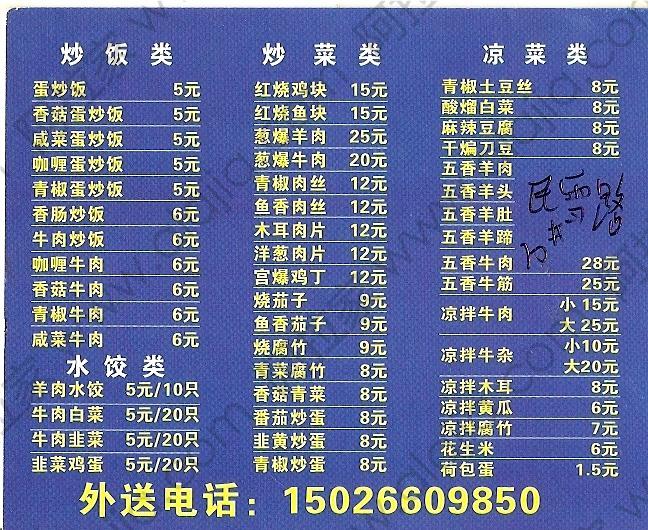 炒饭类
蛋炒饭 5元
香菇蛋炒饭 5元
咸菜蛋炒饭 5元
咖喱蛋炒饭 5元
青椒蛋炒饭 5元
香肠炒饭 6元
牛肉炒饭 6元
咖喱牛肉 6元
香菇牛肉 6元
青椒牛肉 6元
咸菜牛肉 6元
水饺类
羊肉水饺 5元/10只
牛肉白菜 5元/20只
牛肉韭菜 5元/20只
韭菜鸡蛋 5元/20只
炒菜类
红烧鸡块 15元
红烧鱼块 15元
葱爆羊肉 25元
葱爆牛肉 20元
青椒肉丝 12元
鱼香肉丝 12元
木耳肉片 12元
洋葱肉片 12元
宫爆鸡丁 12元
烧茄子 9元
鱼香茄子 9元
烧腐竹 9元
青菜腐竹 8元
香菇青菜 8元
番茄炒蛋 8元
韭黄炒蛋 8元
青椒炒蛋 8元
凉菜类
青椒土豆丝 8元
酸熘白菜 8元
麻辣豆腐 8元
干煸刀豆 8元
五香羊肉
五香羊头
五香羊肚
五香羊蹄
五香牛肉 28元
五香牛筋 25元
凉拌牛肉 小 15元
大 25元
凉拌牛杂 小10元
大20元
凉拌木耳 8元
凉拌黄瓜 6元
凉拌腐竹 7元
花生米 6元
荷包蛋 1.5元
外送电话：15026609850